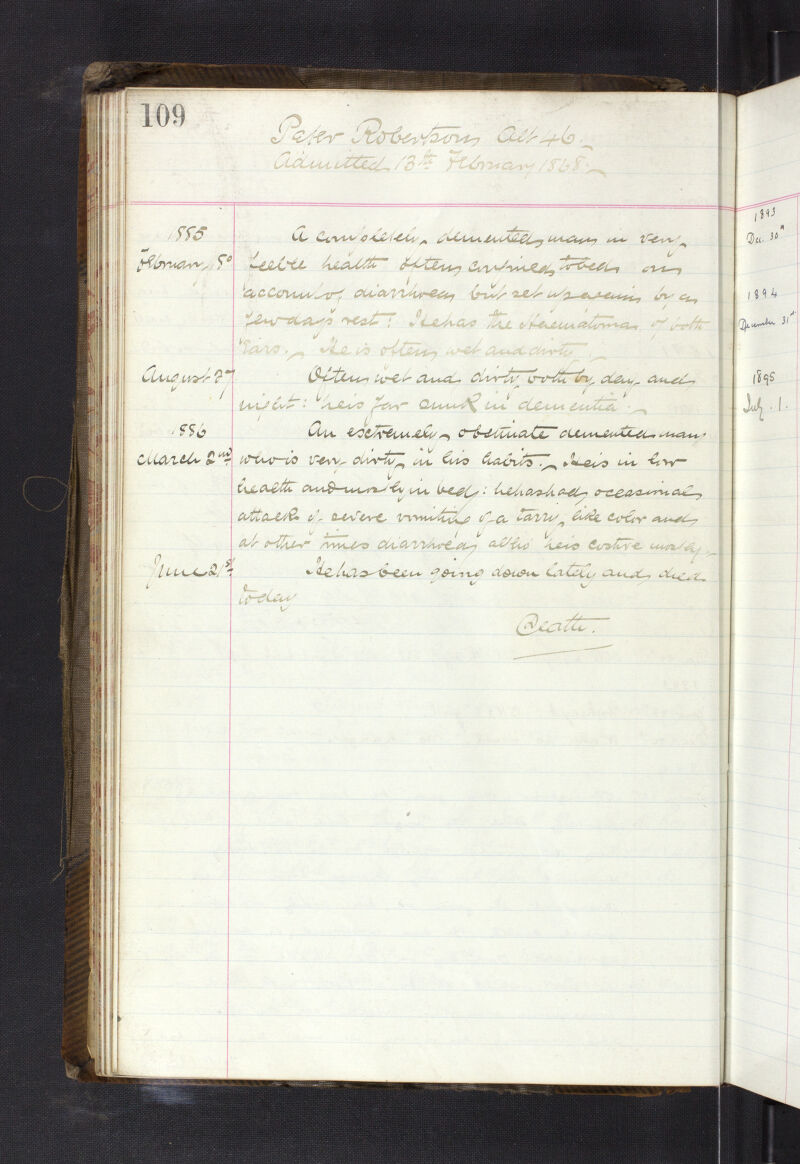 109
Peter Robertson, Aet 46.
Admitted 13th February 1868.
1885
February 18° A completely demented man in very
feeble health often confined to bed on
account of diarrhoea but set up again by a
few days rest: He has the Haematoma of both
Ears. He is often wet and dirty.
August 27 Often wet and dirty both by day and
night: he is far sunk in dementia.
1886 An extremely obstinate demented man
March 2nd who is very dirty in his habits. He is in low
health and mostly in bed: he has had occasional
attacks of severe vomiting of a tarry like color and
at other times diarrhoea, altho he is costive mostly.
June 21st He has been going down lately and died
today
Death.
1893
Dec. 30th
1894
December 31st
1895
July. 1.